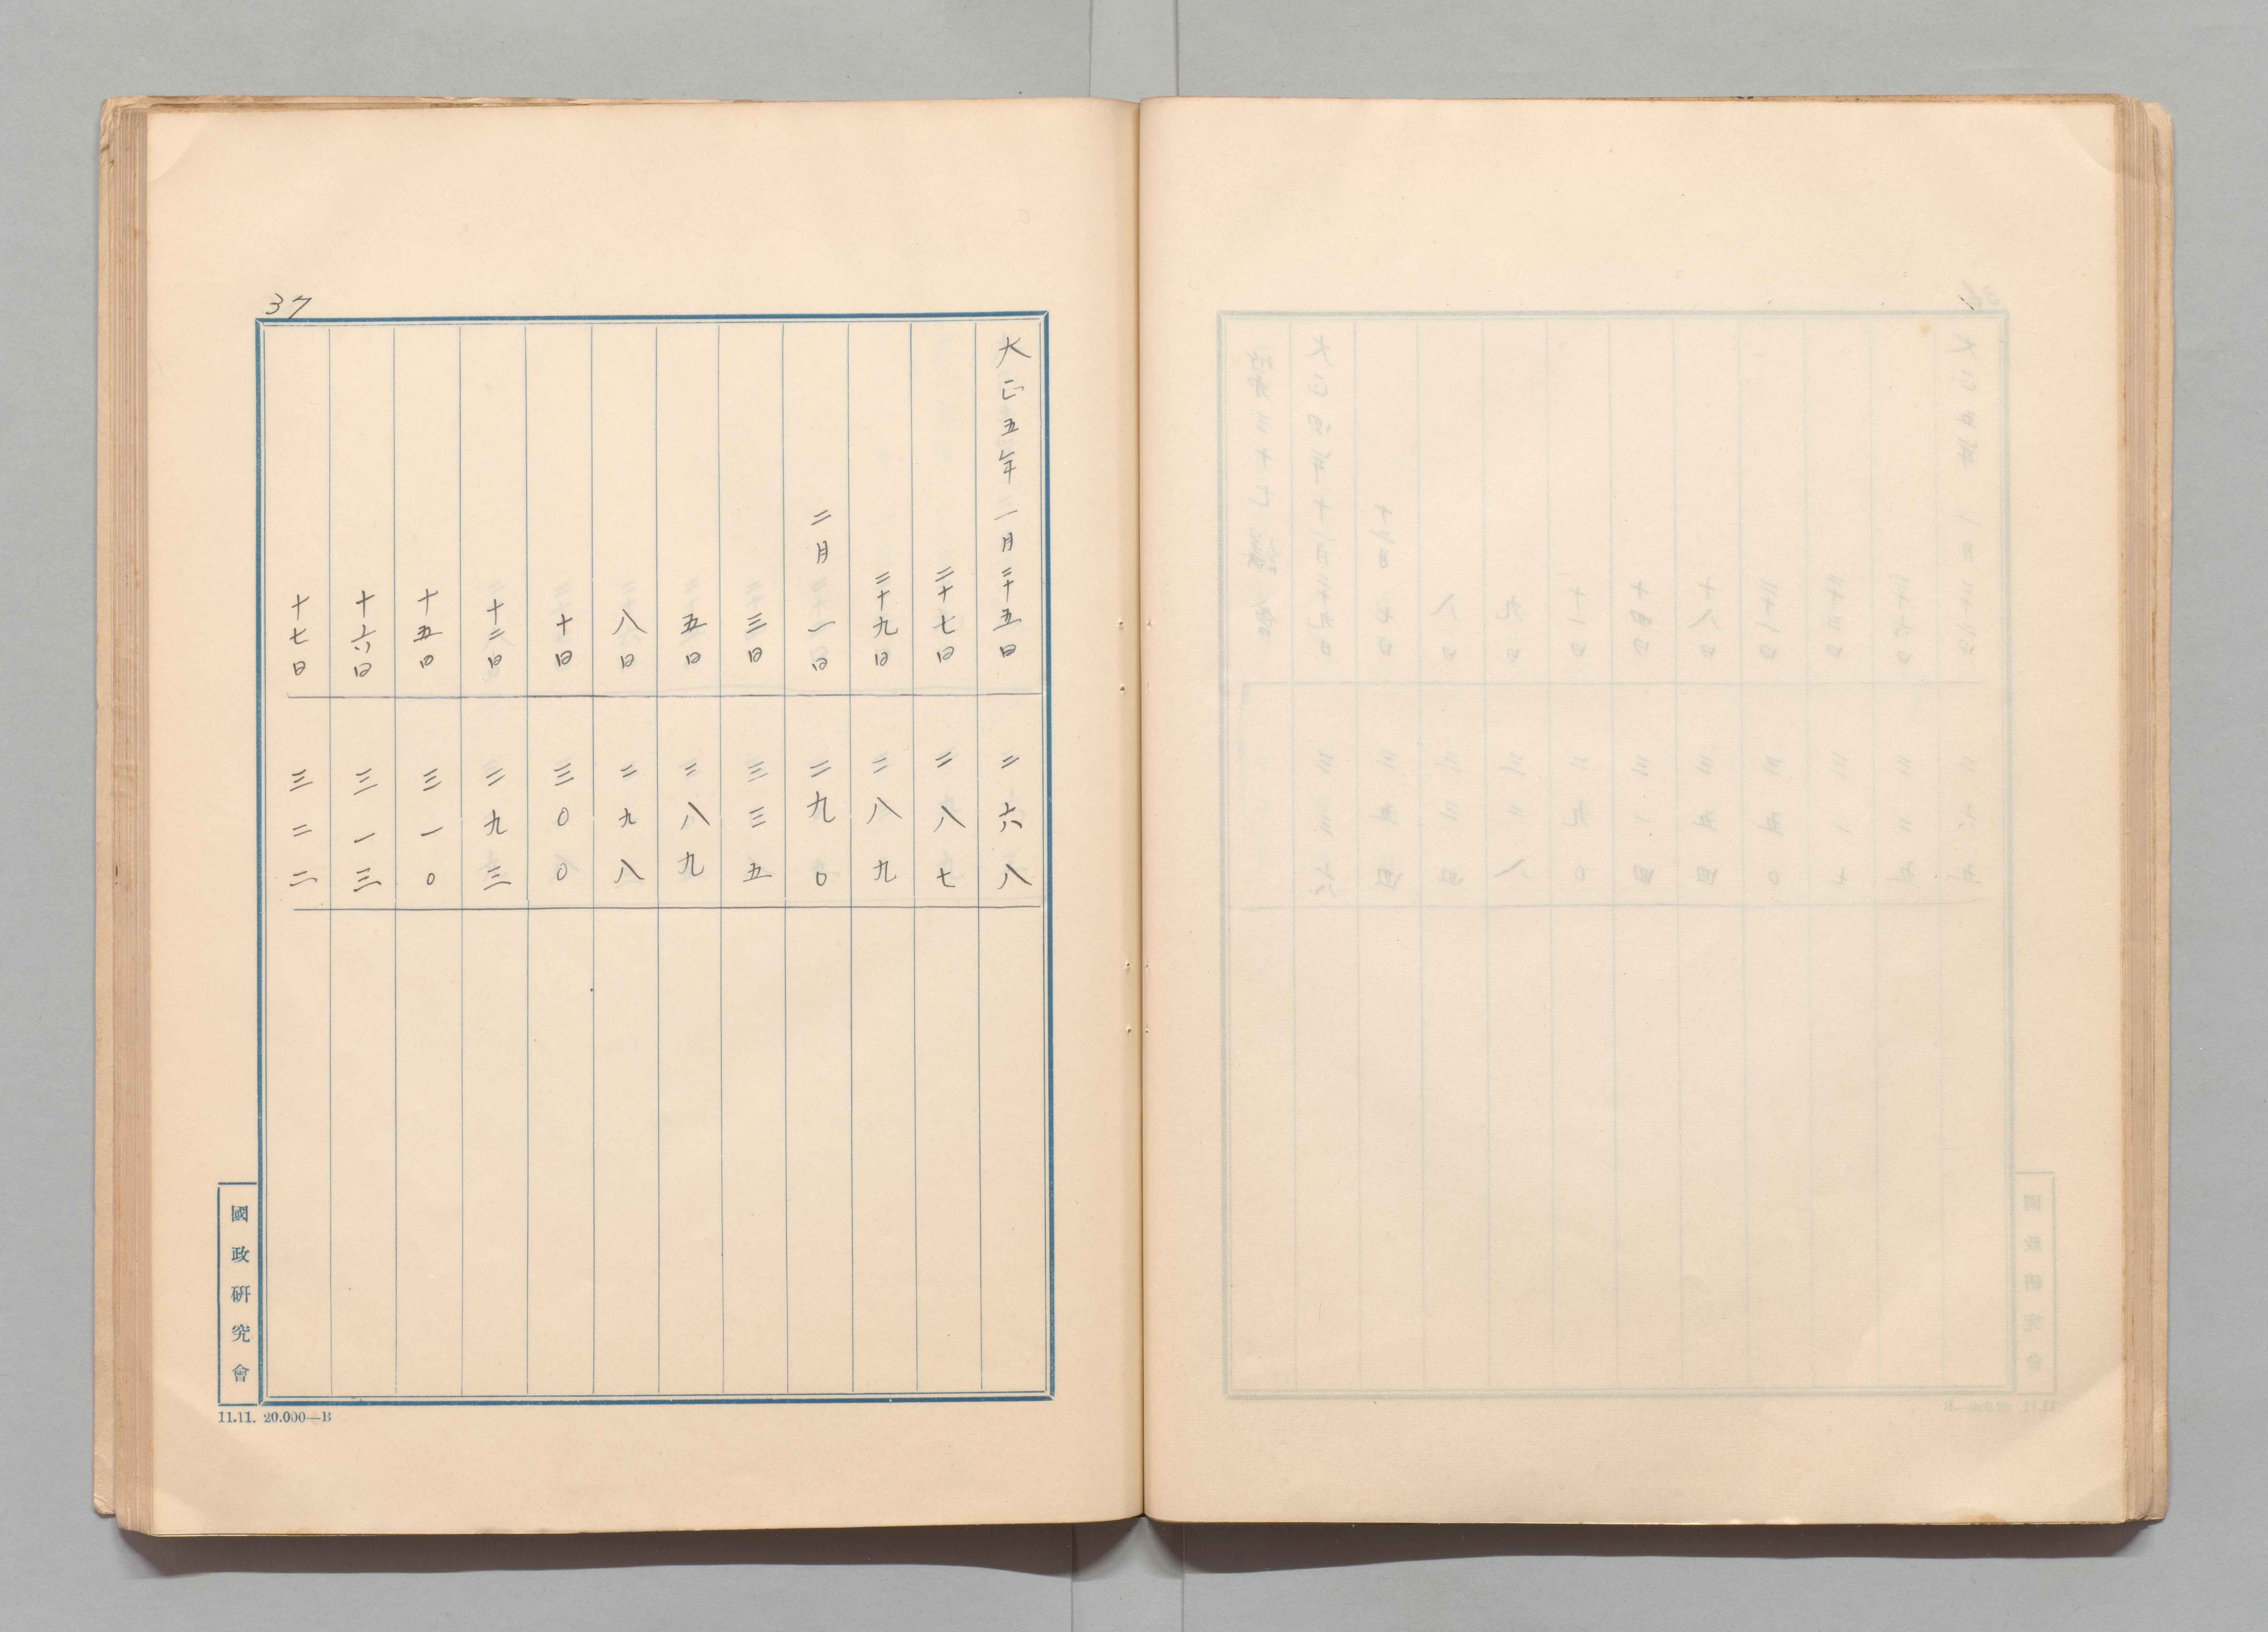 37
大正五年一月二十五日 二六八
二十七日 二八七
二十九日 二八九
二月一日 二九〇
三日 三三五
五日 二八九
八日 二九八
十日 三〇〇
十二日 二九三
十五日 三一〇
十六日 三一三
十七日 三二二
國政研究會
11.11. 20.000—B